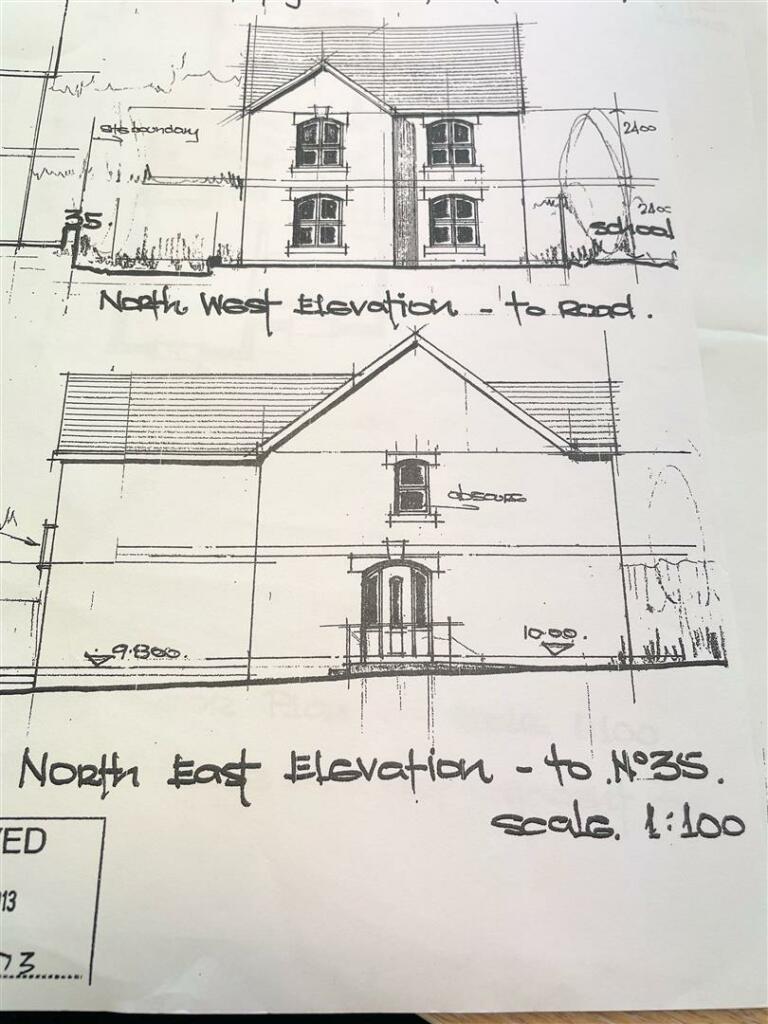 site boundary
2400
2400
35
School
North West Elevation - to Road.
obscure
9.800.
10.00.
North East Elevation - to Nº35.
scale. 1:100
VED
013
73